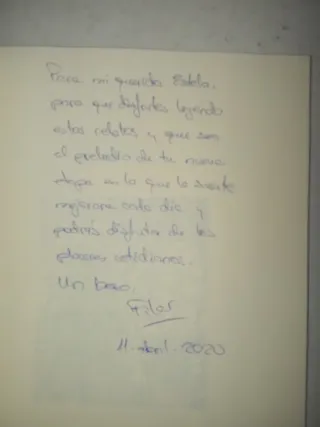 Para mi querida Estela,
para que disfrutes leyendo
estos relatos y que sea
el preludio de tu nueva
etapa en la que la suerte
mejorará cada día y
podrás disfrutar de los
placeres cotidianos.
Un beso,
11-abril-2020